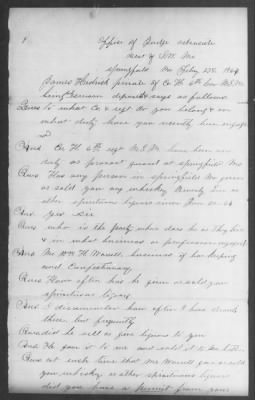 Office of Judge Advocate
Dist of S.W. Mo
Springfield Mo Feby 27th 1864
James Hedrick private of Co H 6th Cav M.S.M.
being sworn deposeth & says as follows
Ques to what Co & regt do you belong & on
what duty have you recently been engaged
in
Ans Co H 6th regt M.S.M. have been on
duty as provost guard at Springfield Mo
Ques Has any person in Springfield Mo given
or sold you any whiskey Brandy Gin or
other spiritous liquors since Jan 64
Ans Yes Sir
Ques who is the party where does he or they live
& in what business or profession engaged
Ans Mr Wm H Worrell, business of bar keeping
and Confectionary
Ques How often has he given or sold you
spiritous liquors
Ans I disremember how often I have drank
there but frequently
Ques did he sell or give liquors to you
Ans He gave it to me and sold it to
Ques at such time that Mr Worrell gave or sold
you whiskey or other spiritous liquors
did you have a permit from your